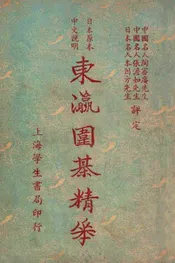 中國名人陶審安先生
中國名人張澹如先生
日本名人本因方先生
評定
日本原本
中文說明
東瀛圍棊精華
上海學生書局印行